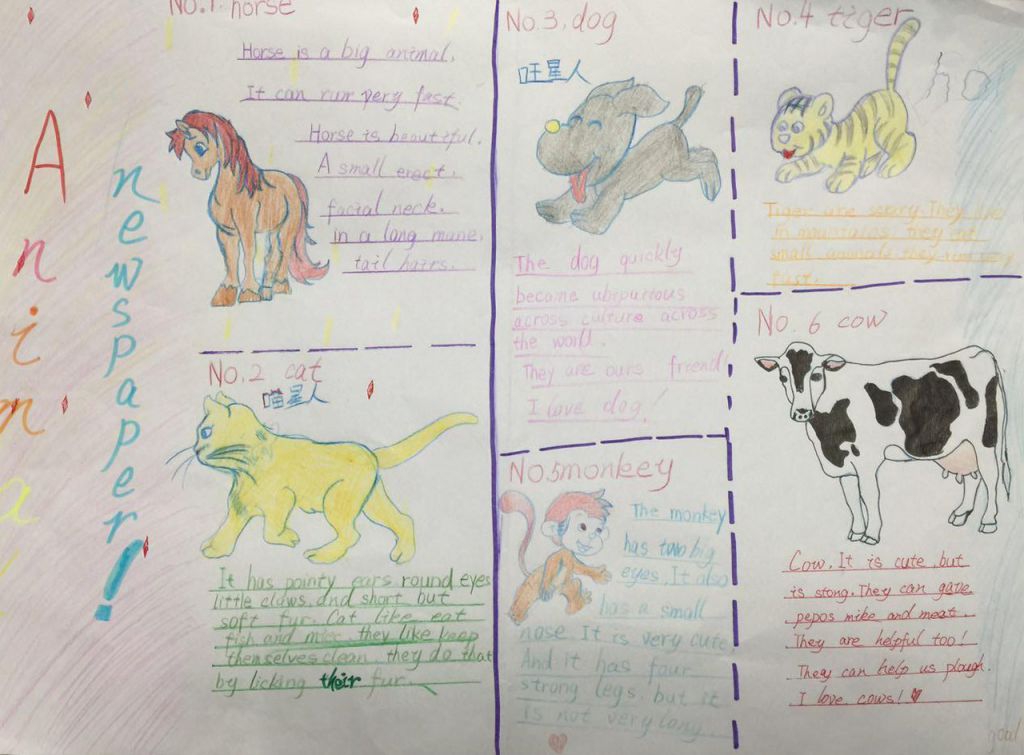 Anima
newspaper!
No.1. horse
Horse is a big animal.
It can run very fast.
Horse is beautiful.
A small erect.
facial neck.
in a long mane,
tail hairs.
No.2 cat
喵星人
It has pointy ears round eyes
little claws. and short but
soft fur. Cat like eat
fish and mice they like keep
themselves clean. they do that
by licking their fur.
No.3. dog
吐星人
The dog quickly
become ubiputious
across culture across
the world.
They are ours friend
I love dog!
No.4 tiger
Tiger are scary. They live
in mountains. they eat
small animals they run very
fast.
No.5 monkey
The monkey
has two big
eyes. It also
has a small
nose. It is very cute
And it has four
strong legs. but it
is not very long
No.6 cow
Cow. It is cute but
is stong. They can gave
pepos mike and meat.
They are helpful too!
They can help us plough.
I love cows!